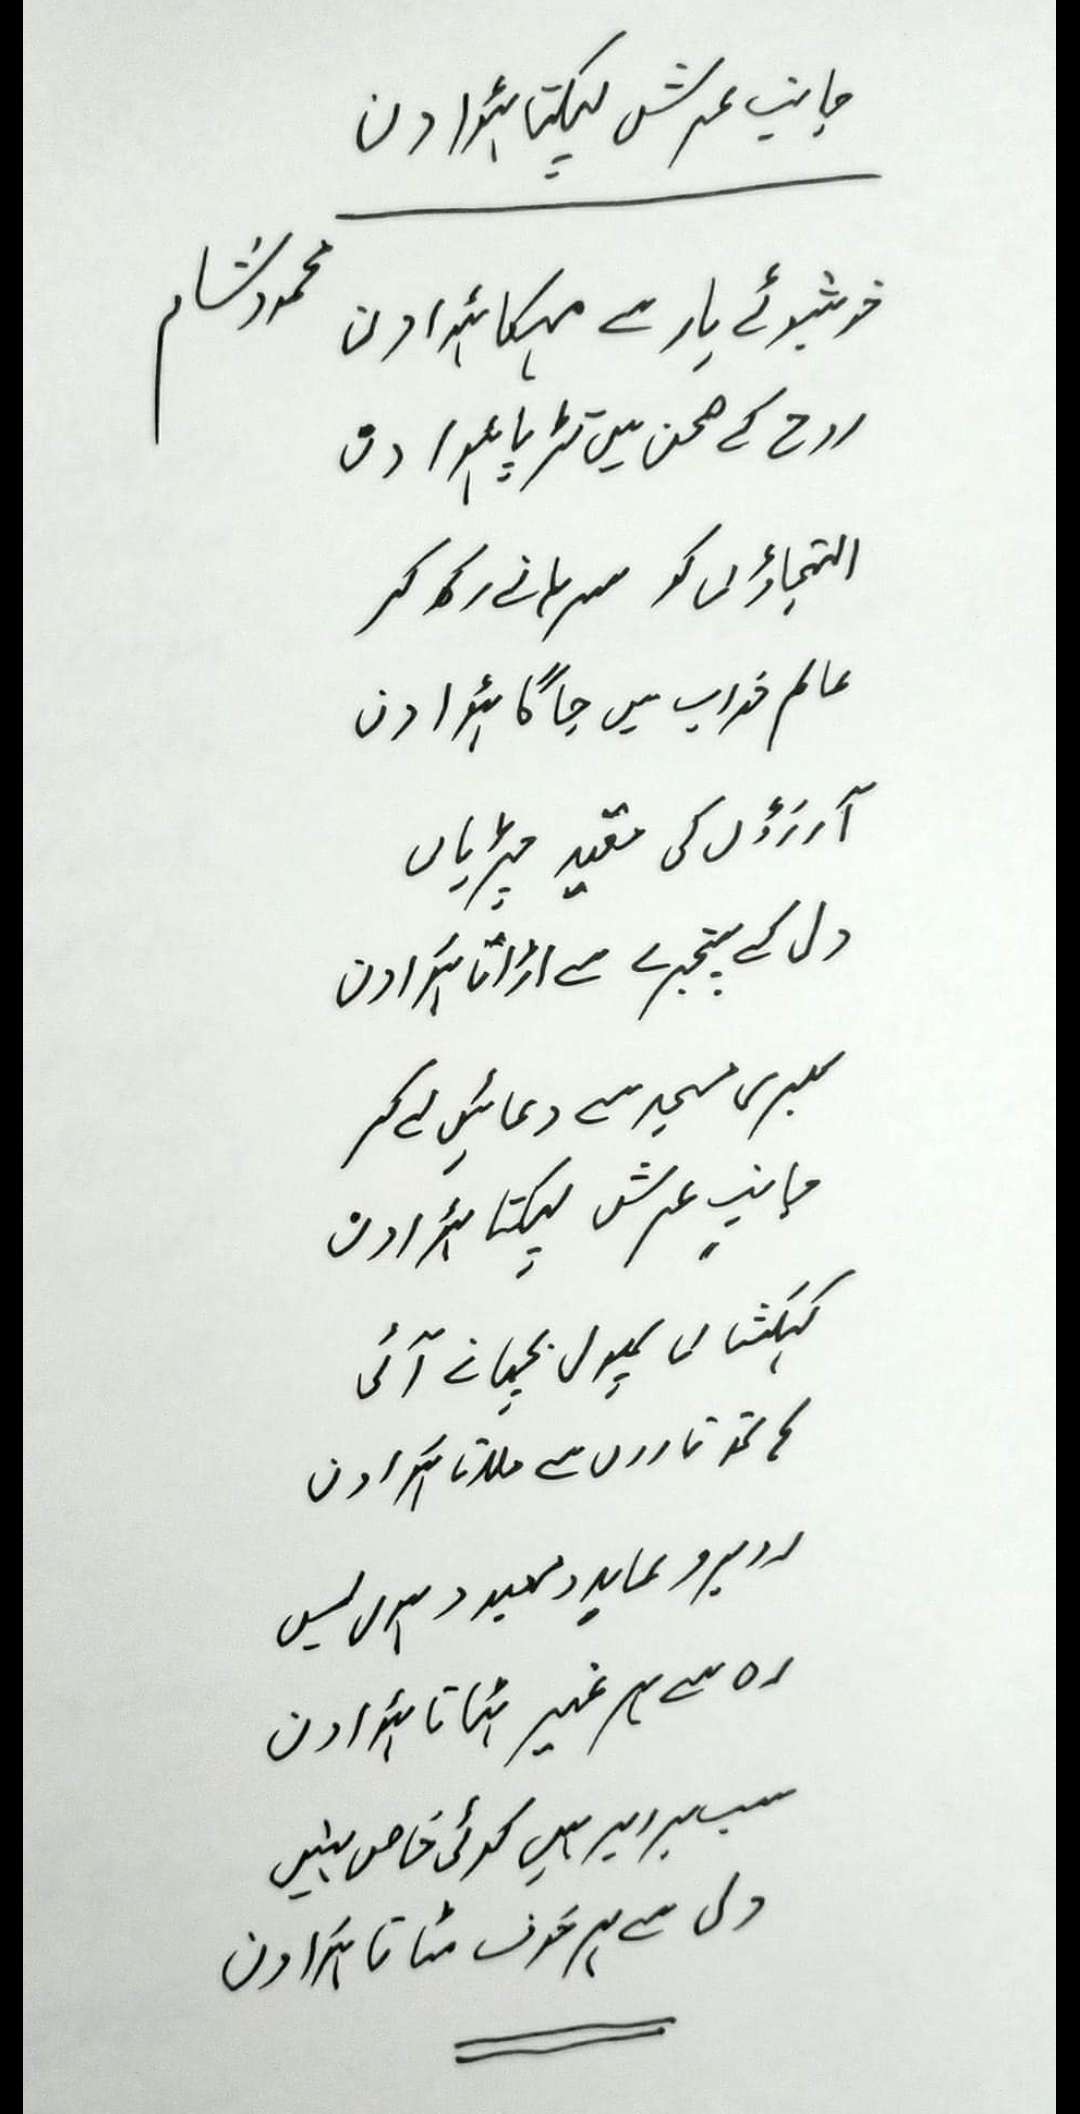 جانبِ عرش لپکتا ہُوا دن
محمود شام
خوشبوئے یار سے مہکا ہُوا دن
روح کے صحن میں تڑپا ہُوا دن
التجاؤں کو سرہانے رکھ کر
عالم خواب میں جاگا ہُوا دن
آرزؤں کی مقید چڑیاں
دل کے پنجرے سے اڑاتا ہُوا دن
میری مسجد سے دعائیں لے کر
جانبِ عرش لپکتا ہُوا دن
کہکشاں پھول بچھانے آئی
ہاتھ تاروں سے ملاتا ہُوا دن
روبرو عابد و معبود ہوں بس
رہ سے ہر غیر ہٹاتا ہُوا دن
سب برابر ہیں کوئی خاص نہیں
دل سے ہر خوف مٹاتا ہُوا دن